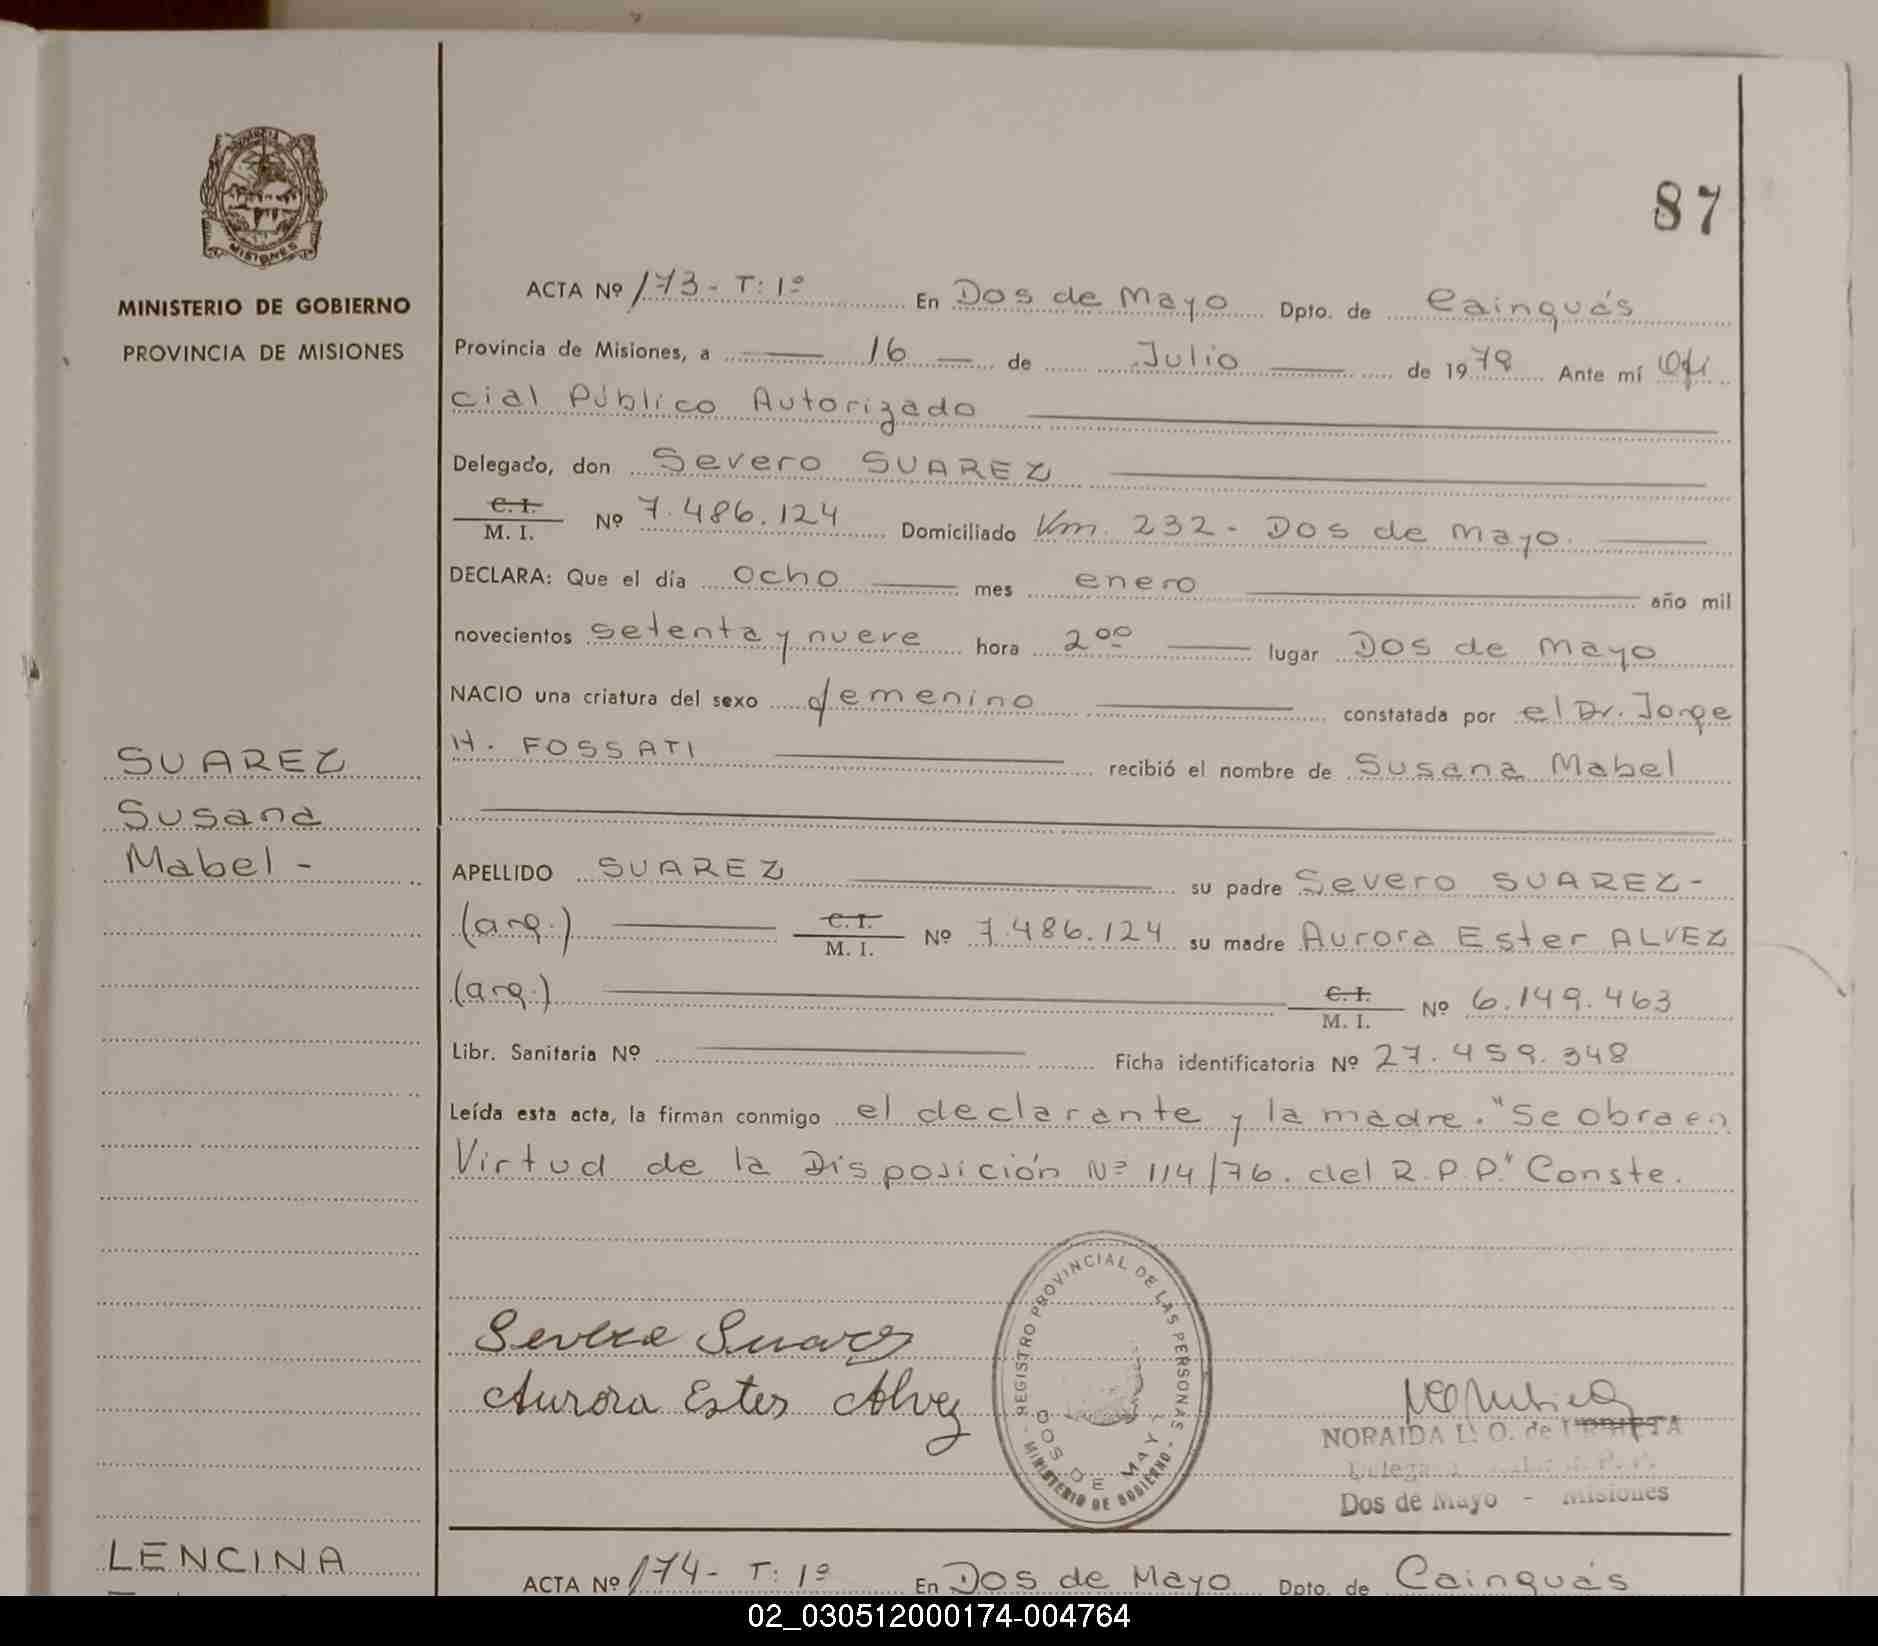 87
MINISTERIO DE GOBIERNO
PROVINCIA DE MISIONES
MISIONES
ACTA Nº 173 - T: 1º En Dos de Mayo Dpto. de Cainguás
Provincia de Misiones, a 16 de Julio de 1979 Ante mí Ofi
cial Público Autorizado
Delegado, don Severo SUAREZ
C. I.
M. I. Nº 7.486.124 Domiciliado Km. 232 - Dos de Mayo.
DECLARA: Que el día ocho mes enero año mil
novecientos setenta y nueve hora 2 00 lugar Dos de Mayo
NACIO una criatura del sexo femenino constatada por el Dr. Jorge
H. FOSSATI recibió el nombre de Susana Mabel
SUAREZ
Susana
Mabel -
APELLIDO SUAREZ su padre Severo SUAREZ -
(arg.) C. I. M. I. Nº 7.486.124 su madre Aurora Ester ALVEZ
(arg.) C. I. M. I. Nº 6.149.463
Libr. Sanitaria Nº Ficha identificatoria Nº 27.459.348
Leída esta acta, la firman conmigo el declarante y la madre. "Se obra en
Virtud de la Disposición Nº 114/76. del R.P.P." Conste.
Severo Suarez
Aurora Ester Alvez
REGISTRO PROVINCIAL DE LAS PERSONAS
DOS DE MAYO
- MINISTERIO DE GOBIERNO -
NORAIDA L. O. de URRIETA
Dos de Mayo - Misiones
LENCINA
ACTA Nº 174 - T: 1º En Dos de Mayo Dpto. de Cainguás
02_030512000174-004764